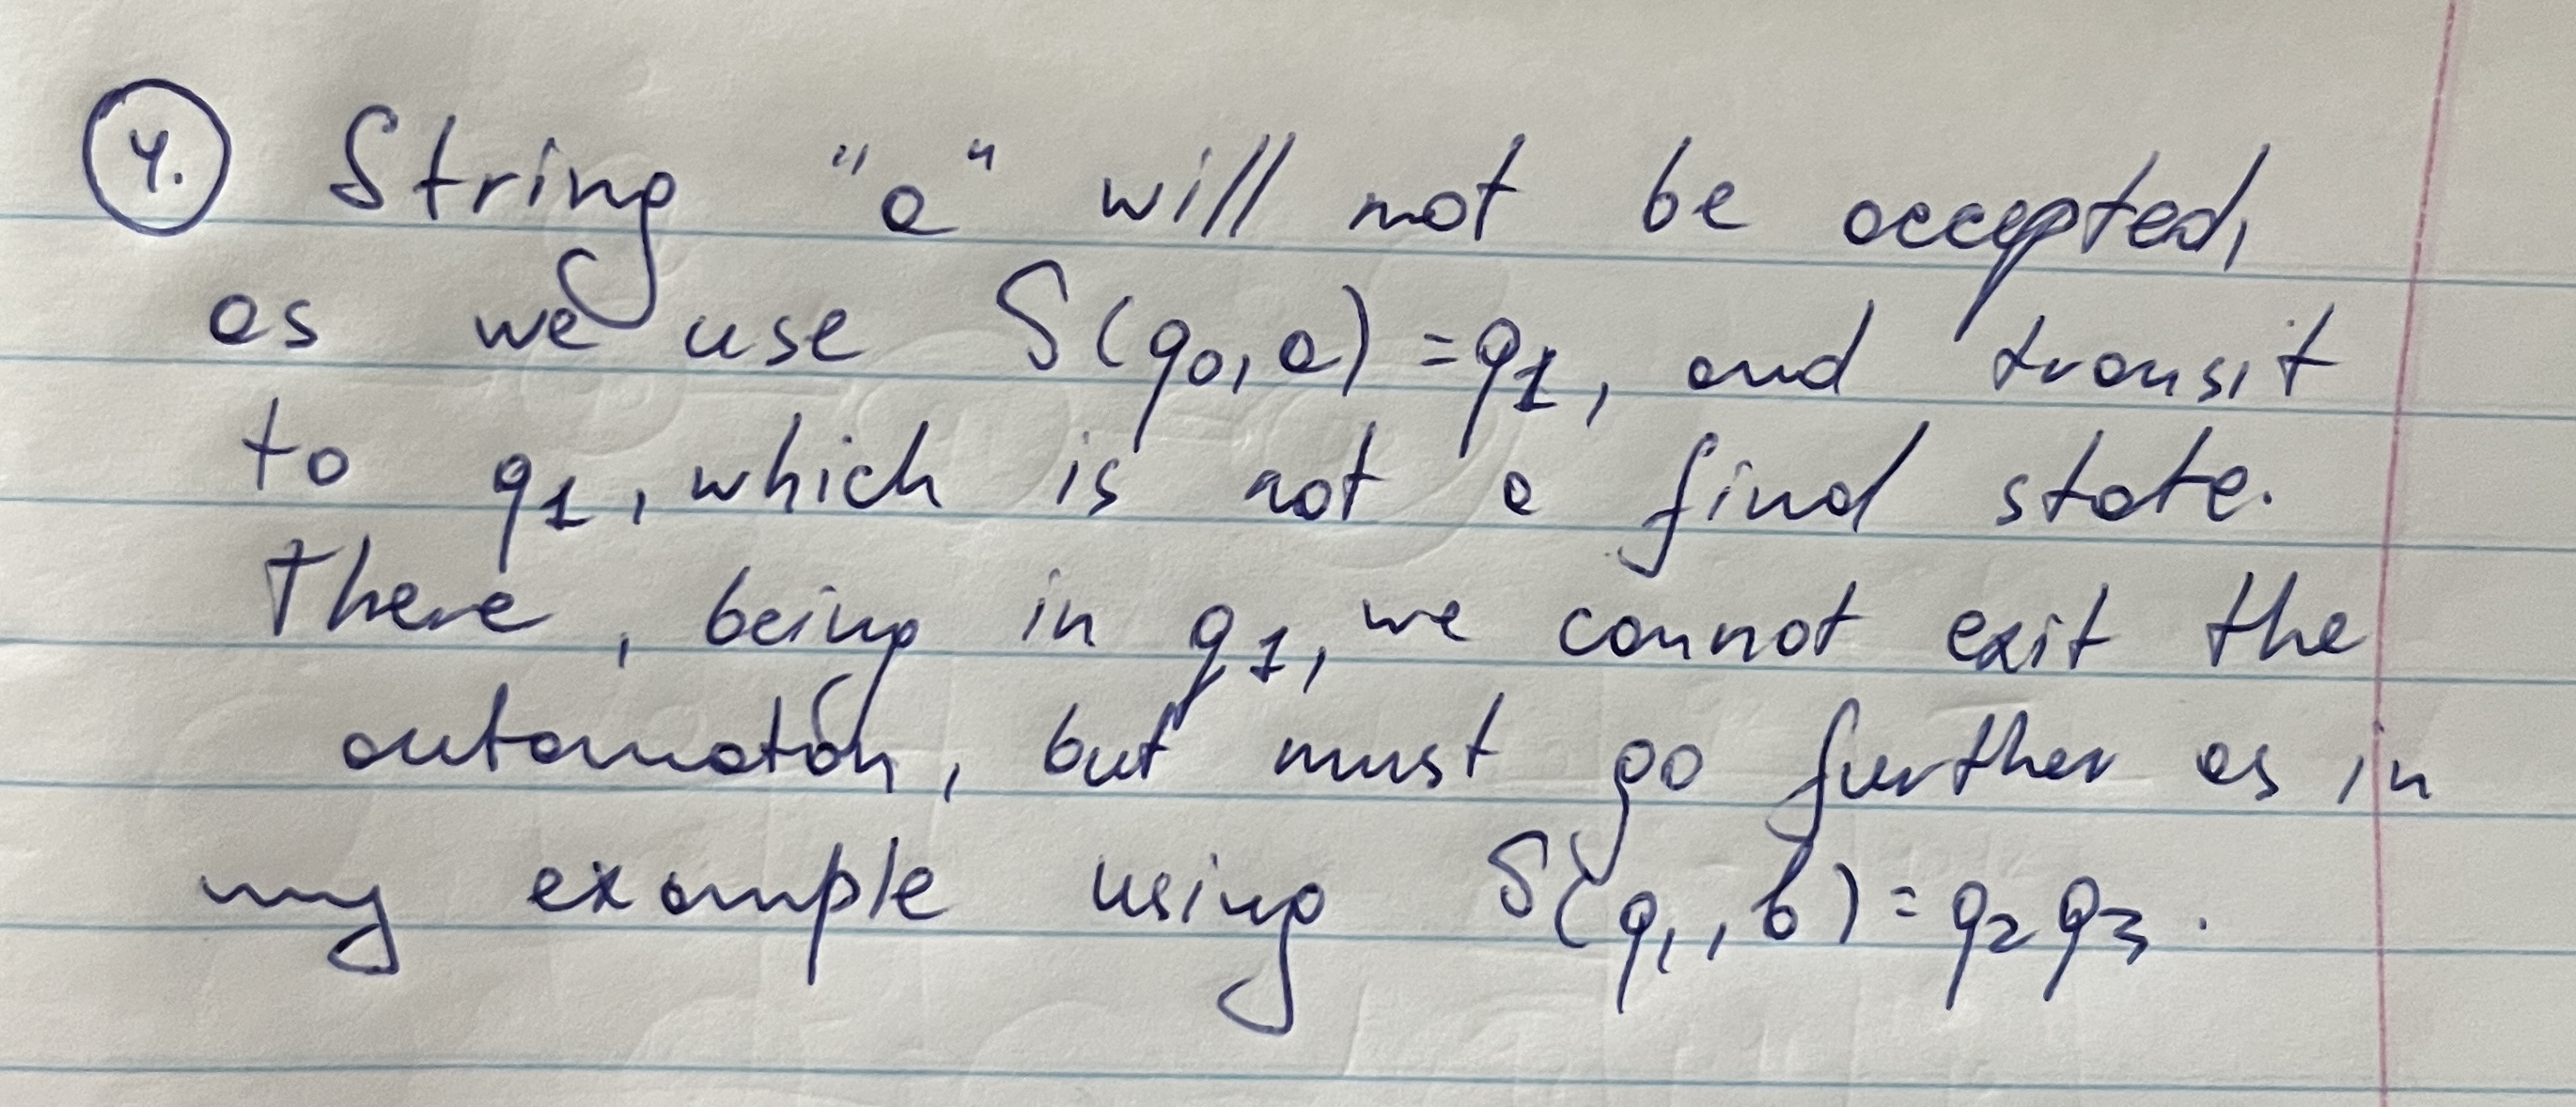 4. String "a" will not be accepted,
as we use δ(q0, a) = q1, and transit
to q1, which is not a final state.
There, being in q1, we cannot exit the
automaton, but must go further as in
my example using δ(q1, b) = q2q3.